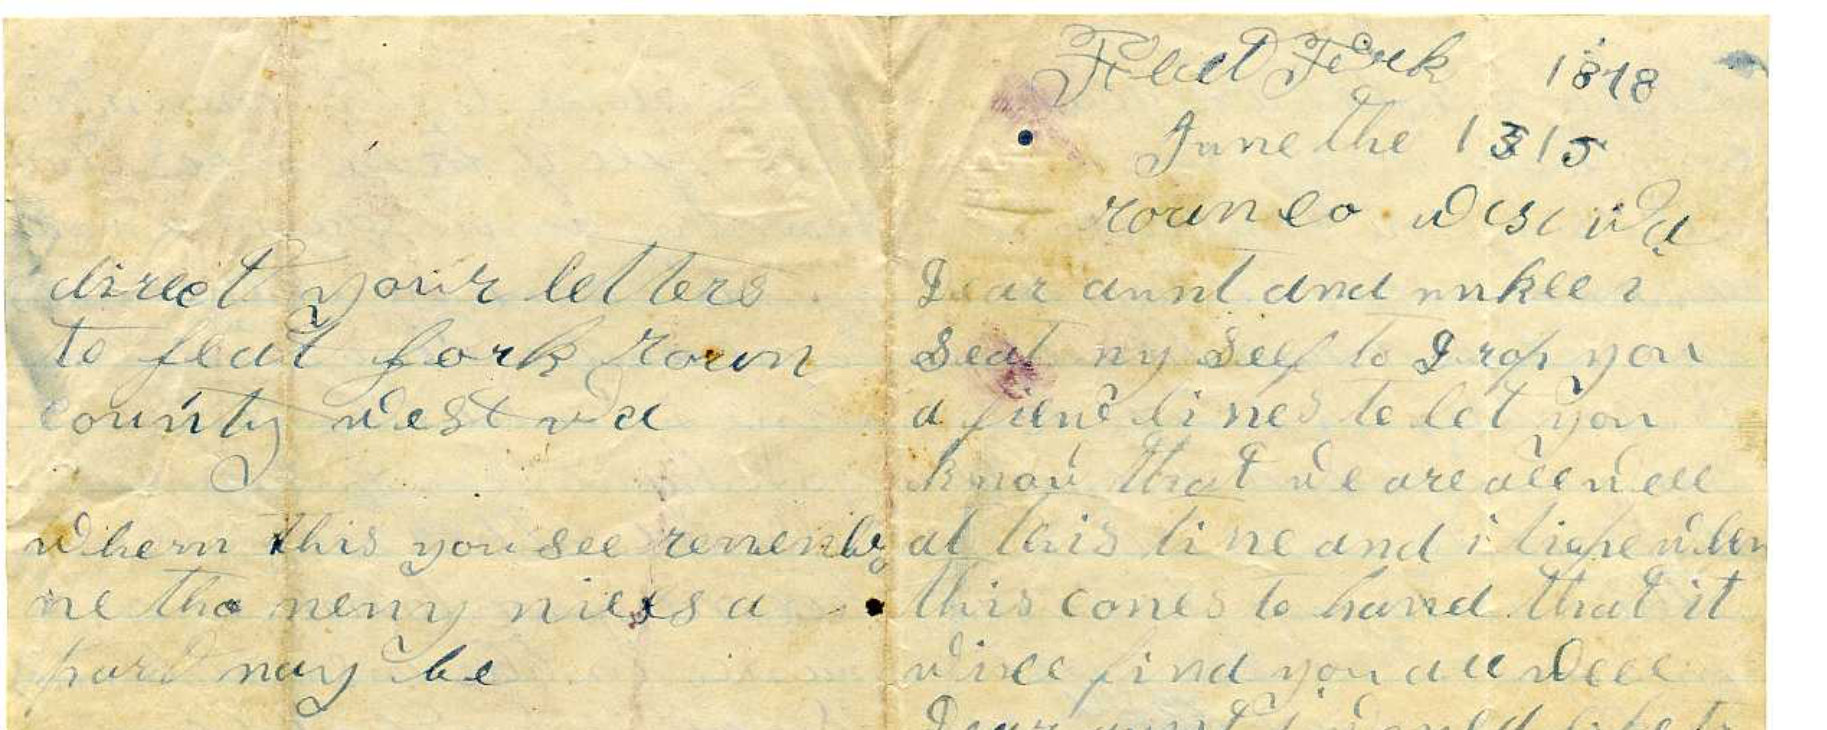 direct your letters
to flat fork roun
county west va
when this you see remember
me tho meny miels a
part may be
Flat Fork 1878
June the 1315
roun co West Va
Dear aunt and unkle i
Seat my Self to Drop you
a fiew lines to let you
know that we are all well
at this time and i hope when
this comes to hand that it
will find you all well
Dear aunt i would like to